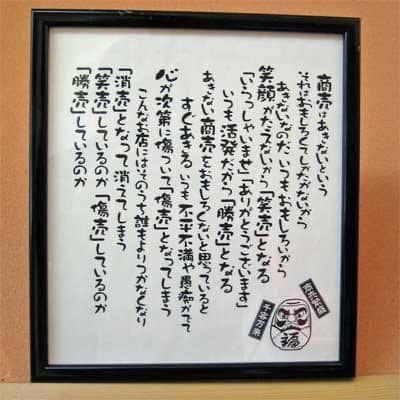 商売はあきないという
それはおもしろくてしかたがないから
あきないなのだ いつもおもしろいから
笑顔がたえないから「笑売」となる
「いらっしゃいませ」「ありがとうございます」
いつも活発だから「勝売」となる
あきない商売をおもしろくないと思っていると
すぐあきる いつも不平不満や愚痴がでて
心が次第に傷ついて「傷売」となってしまう
こんなお店にはそのうち誰もよりつかなくなり
「消売」となって消えてしまう
「笑売」しているのか「傷売」しているのか
「勝売」しているのか
千客万来
福